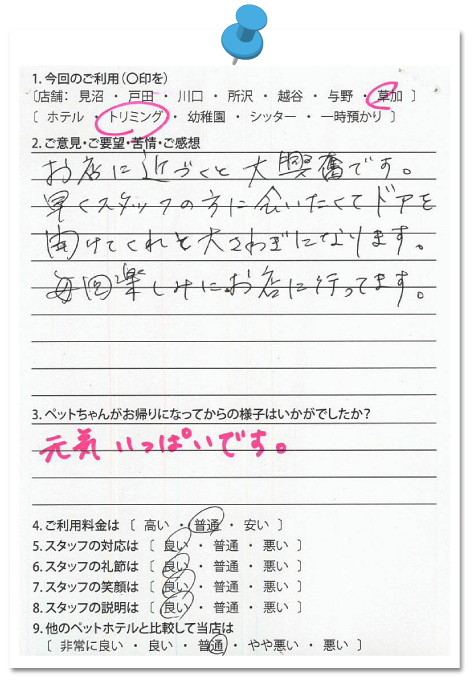 1. 今回のご利用(〇印を)
〔店舗: 見沼 ・ 戸田 ・ 川口 ・ 所沢 ・ 越谷 ・ 与野 ・ 草加 〕
〔 ホテル ・ トリミング ・ 幼稚園 ・ シッター ・ 一時預かり 〕
2. ご意見・ご要望・苦情・ご感想
お店に近づくと大興奮です。
早くスタッフの方に会いたくてドアを
開けてくれと大さわぎになります。
毎回楽しみにお店に行ってます。
3. ペットちゃんがお帰りになってからの様子はいかがでしたか?
元気いっぱいです。
4. ご利用料金は 〔 高い ・ 普通 ・ 安い 〕
5. スタッフの対応は 〔 良い ・ 普通 ・ 悪い 〕
6. スタッフの礼節は 〔 良い ・ 普通 ・ 悪い 〕
7. スタッフの笑顔は 〔 良い ・ 普通 ・ 悪い 〕
8. スタッフの説明は 〔 良い ・ 普通 ・ 悪い 〕
9. 他のペットホテルと比較して当店は
〔 非常に良い ・ 良い ・ 普通 ・ やや悪い ・ 悪い 〕